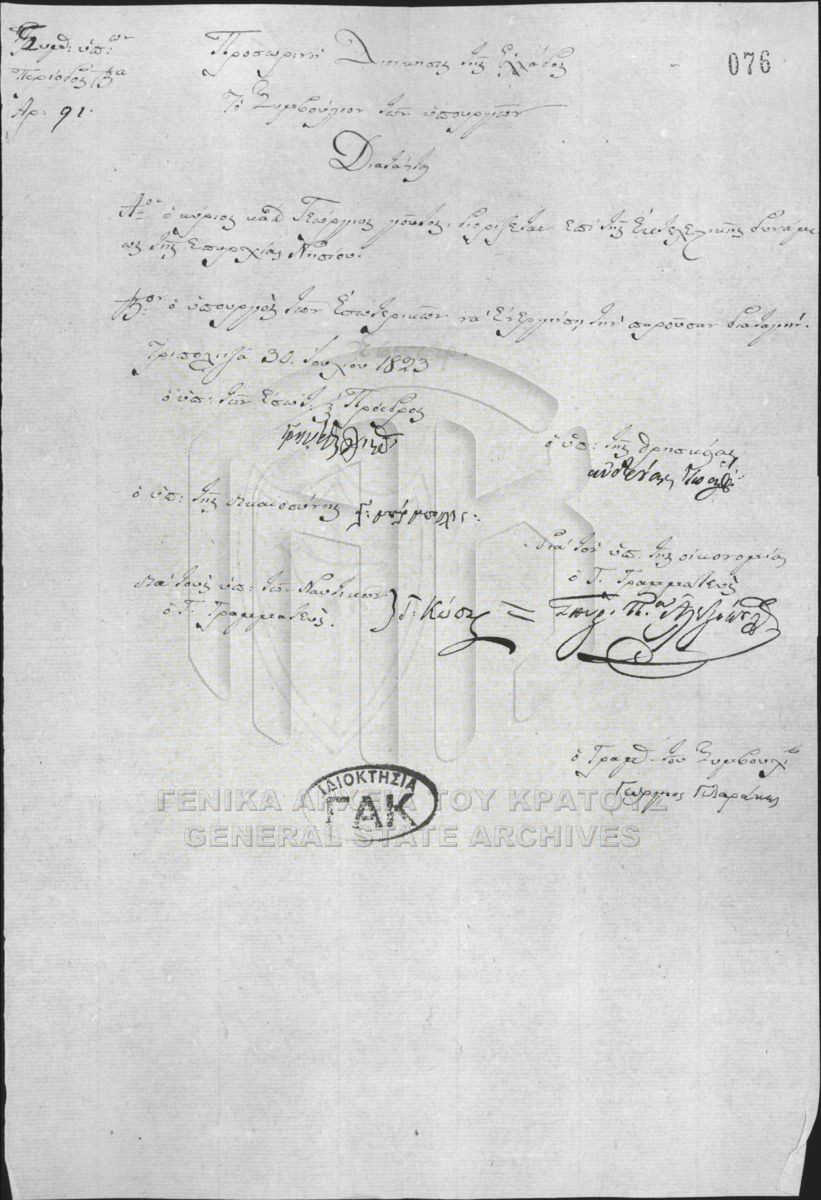 Συμβ: ὑπ:ων
Περίοδος Βα
Ἀρ. 91.
Προσωρινὴ Διοίκησις τῆς Ἑλλάδος
076
Τὸ Συμβούλιον τῶν ὑπουργῶν
Διατάττει
Αον ὁ κύριος Γεώργιος διορίζεται ἐπὶ τῆς Ἐκτελεστικῆς δυνάμε
ως τῆς ἐπαρχίας Νησίου.
Βον ὁ ὑπουργὸς τῶν Ἐσωτερικῶν νὰ ἐνεργήσῃ τὴν παροῦσαν διαταγήν.
Τριπολιτζᾶ 30. Ἰουλίου 1823
ὁ ὑπ: τῶν Ἐσωτ: Πρόεδρος
ὁ ὑπ: τῆς θρησκείας
ὁ ὑπ: τῆς δικαιοσύνης
διὰ τὸν ὑπ: τῆς οἰκονομίας
ὁ Γ. Γραμματεὺς
διὰ τοὺς ὑπ: τῶν Ναυτικῶν
ὁ Γ. Γραμματεὺς.
ὁ Γραμ. τοῦ Συμβουλ
Γεώργιος Γλαράκης
ΙΔΙΟΚΤΗΣΙΑ
ΓΑΚ
ΓΕΝΙΚΑ ΑΡΧΕΙΑ ΤΟΥ ΚΡΑΤΟΥΣ
GENERAL STATE ARCHIVES